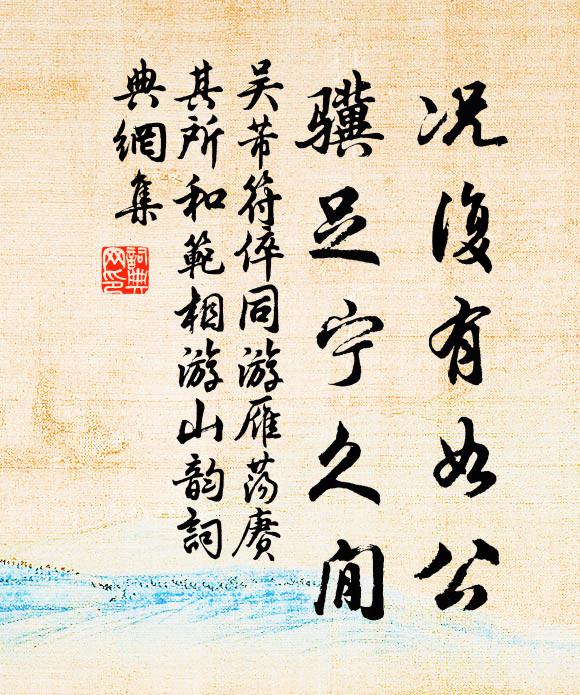 况復有如公
驥足宁久閒
吴芾符倅同游雁荡赓
其所和範相游山韵詞
典網集
詞典網印